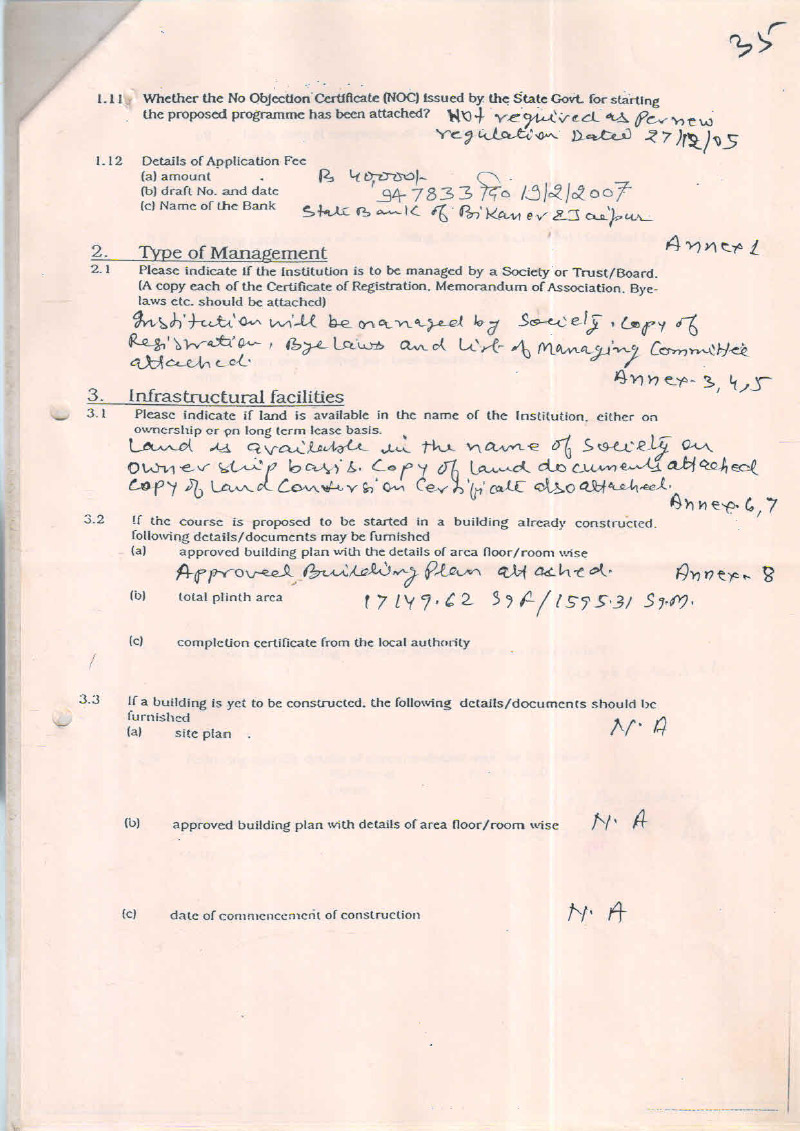 35
1.11 Whether the No Objection Certificate (NOC) issued by the State Govt. for starting
the proposed programme has been attached? Not required as Per new
regulation Dated 27/12/05
1.12 Details of Application Fee
(a) amount Rs 40,000/-
(b) draft No. and date 947833 19/2/2007
(c) Name of the Bank State Bank of Bikaner & Jaipur
Annex 1
2. Type of Management
2.1 Please indicate if the Institution is to be managed by a Society or Trust/Board.
(A copy each of the Certificate of Registration, Memorandum of Association, Bye-
laws etc. should be attached)
Institution will be managed by Society, Copy of
Registration, Bye Laws and List of Managing Committee
attached.
Annex- 3, 4, 5
3. Infrastructural facilities
3.1 Please indicate if land is available in the name of the Institution, either on
ownership or on long term lease basis.
Land is available in the name of Society on
owner ship basis. Copy of land documents attached
Copy of Land Conversion Certificate also attached.
Annex. 6, 7
3.2 If the course is proposed to be started in a building already constructed,
following details/documents may be furnished
(a) approved building plan with the details of area floor/room wise
Approved Building Plan attached. Annex- 8
(b) total plinth area 17149.62 Sqf/1595.31 Sq.M.
(c) completion certificate from the local authority
3.3 If a building is yet to be constructed, the following details/documents should be
furnished
(a) site plan . N. A
(b) approved building plan with details of area floor/room wise N. A
(c) date of commencement of construction N. A